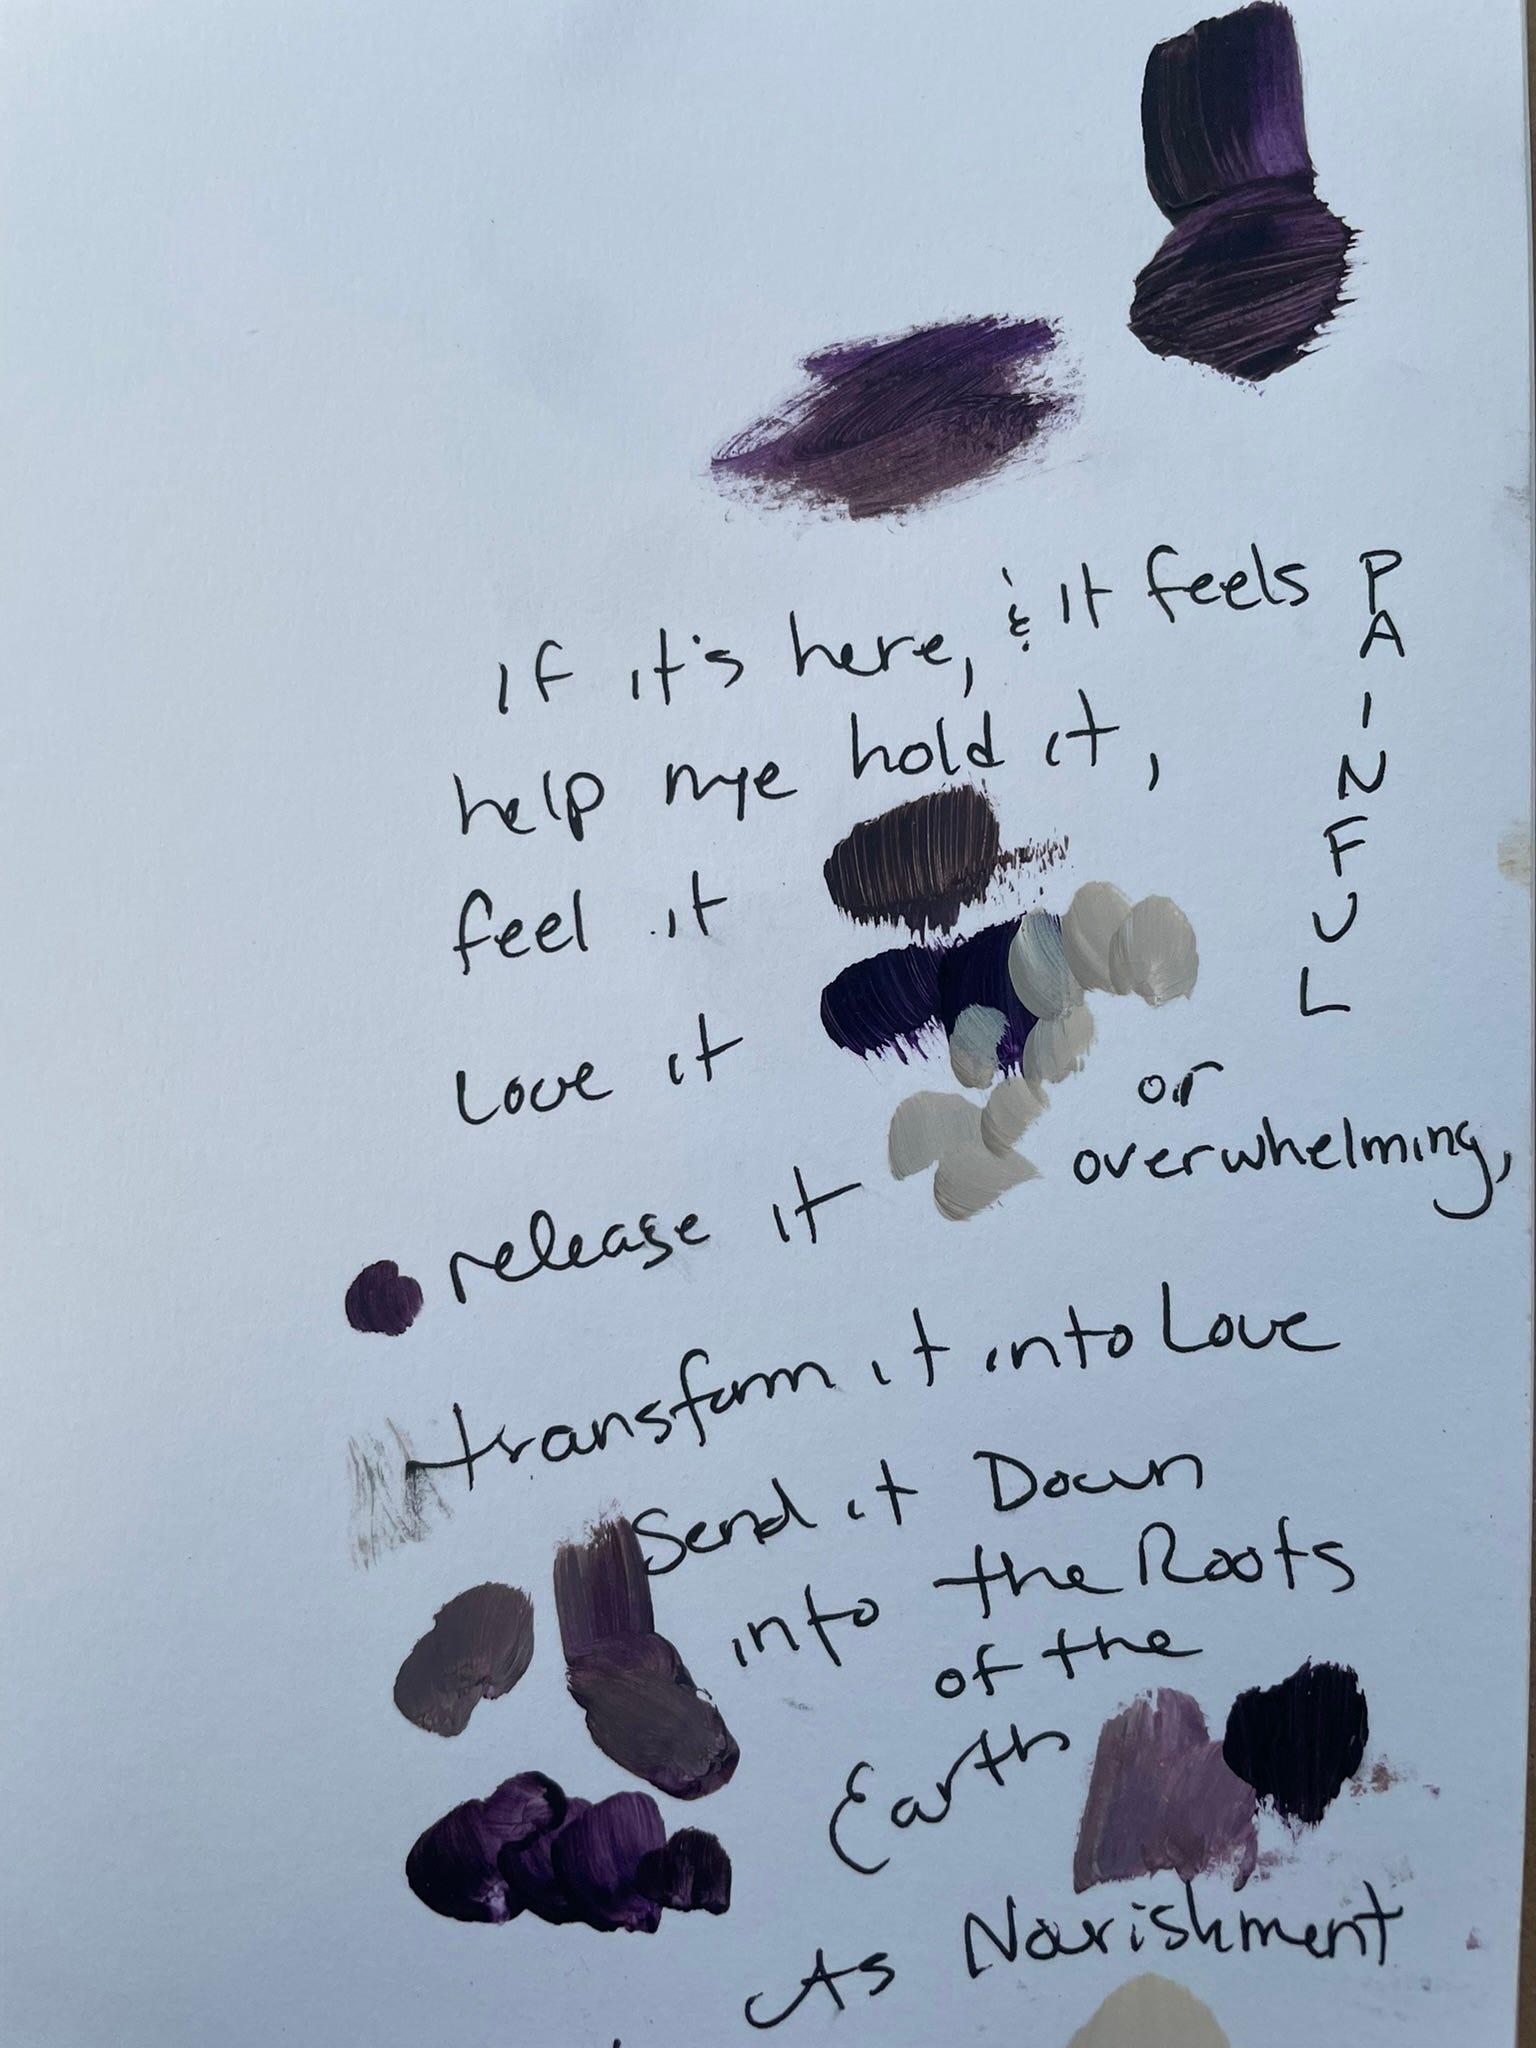 If it's here, & it feels
PAINFUL
or
overwhelming,
help mye hold it,
feel it
Love it
release it
transform it into Love
Send it Down
into the Roots
of the
Earth
As Nourishment